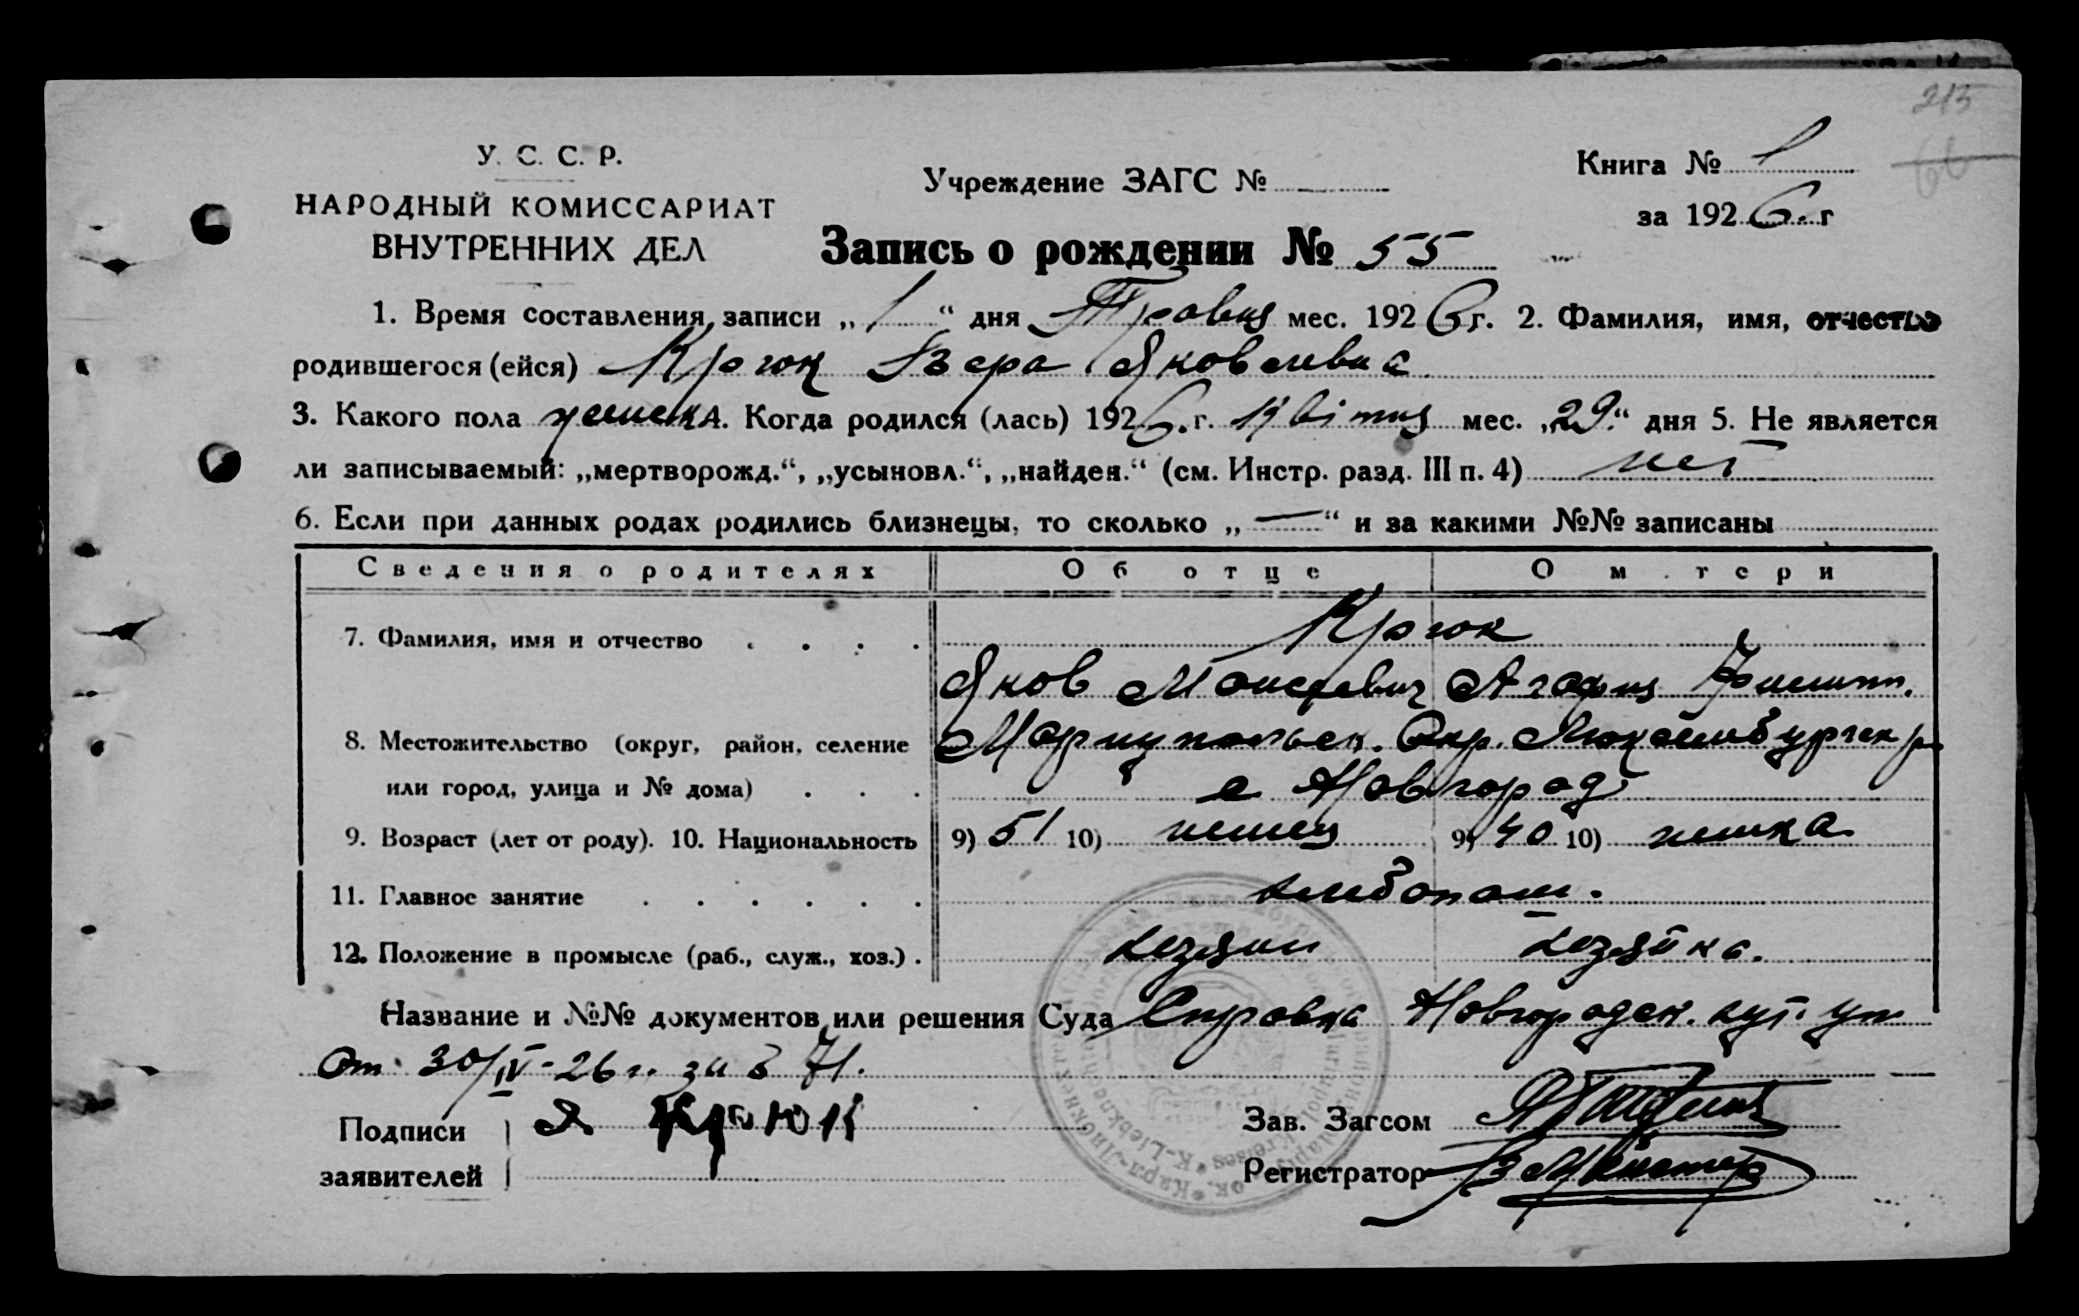 215
66
У. С. С. Р.
НАРОДНЫЙ КОМИССАРИАТ
ВНУТРЕННИХ ДЕЛ
Учреждение ЗАГС №
Книга № 1
за 1926 г
Запись о рождении № 55
1. Время составления записи „1“ дня Травня мес. 1926 г. 2. Фамилия, имя, отчество
родившегося (ейся) Крюк Вера Яковлевна
3. Какого пола женск 4. Когда родился (лась) 1926 г. Квітня мес. „29“ дня 5. Не является
ли записываемый: „мертворожд.“, „усыновл.“, „найден.“ (см. Инстр. разд. III п. 4) нет
6. Если при данных родах родились близнецы, то сколько „—“ и за какими №№ записаны
Сведения о родителях Об отце О м тери
7. Фамилия, имя и отчество Крюк
Яков Моисеевич Агафия
8. Местожительство (округ, район, селение Мариупольск. Окр. Люксембургск р.
или город, улица и № дома) с Новгород
9. Возраст (лет от роду). 10. Национальность 9) 51 10) немец 9) 40 10) немка
11. Главное занятие хлебопаш.
12. Положение в промысле (раб., служ., хоз.) хозяин хозяйка.
Название и №№ документов или решения Суда Справка Новгородск.
От 30/IV-26 г. за № 71.
Подписи Я Крюк
заявителей
Зав. Загсом
Регистратор